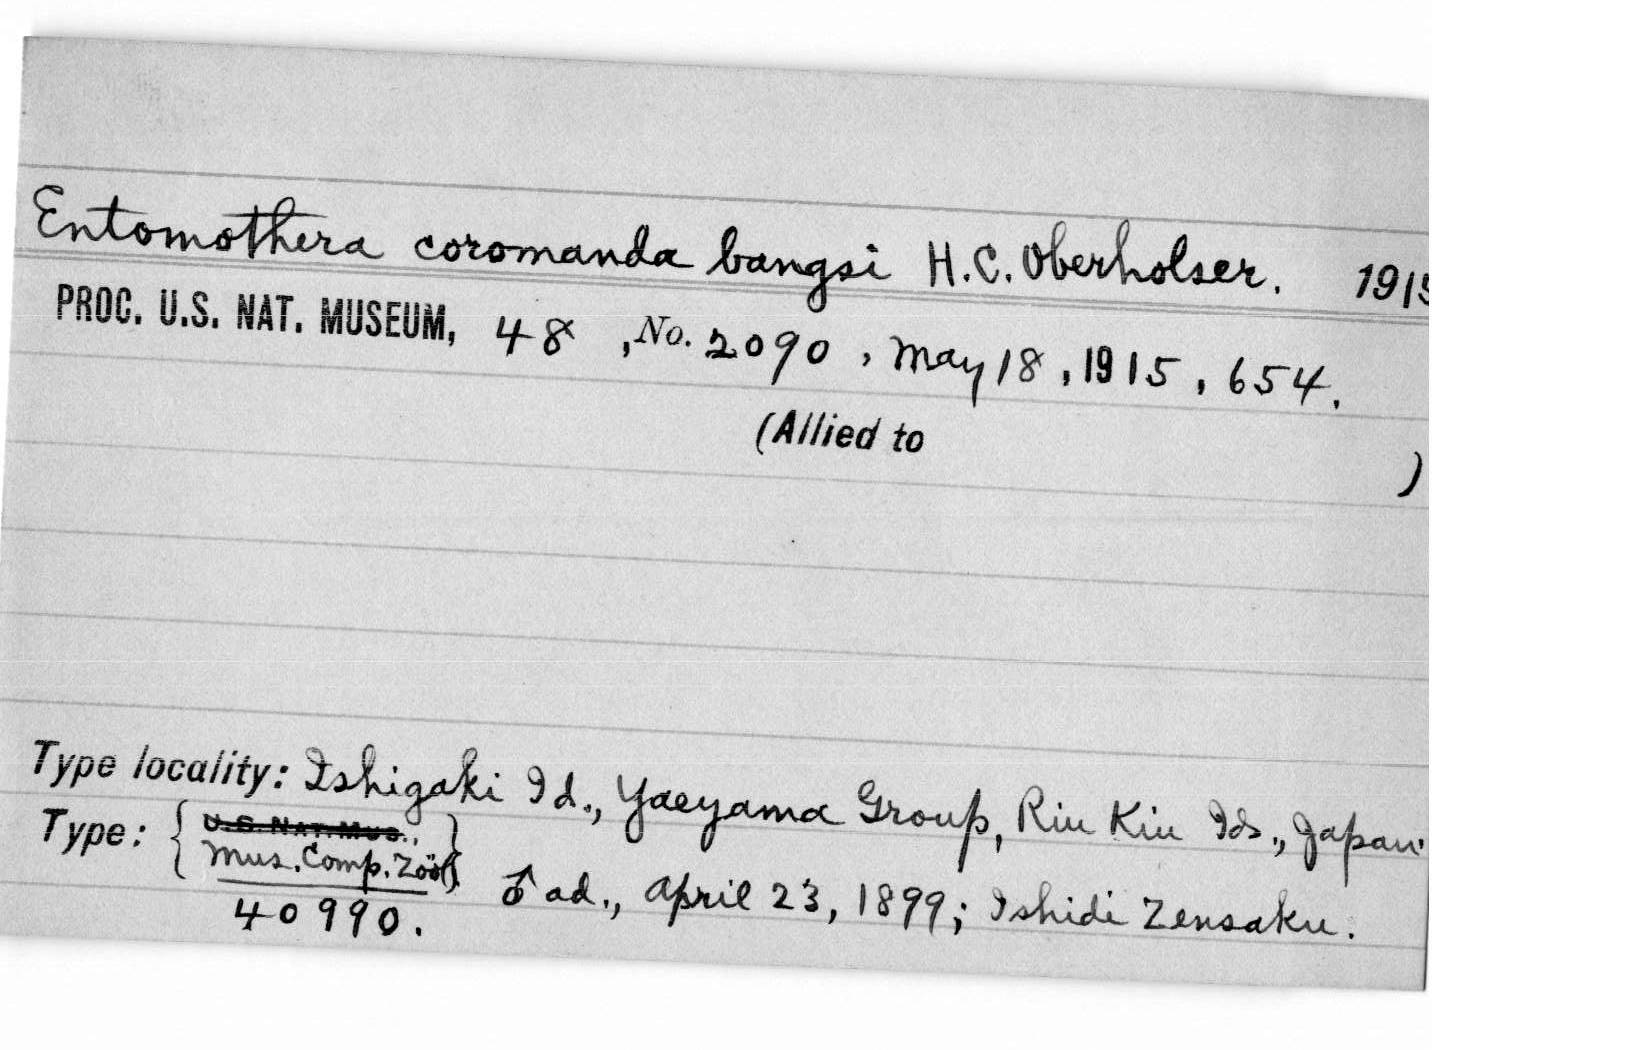 Entomothera coromanda bangsi H.C. Oberholser. 1915
PROC. U.S. NAT. MUSEUM, 48, No. 2090, May 18, 1915, 654.
(Allied to )
Type locality: Ishigaki Id., Yaeyama Group, Riu Kiu Ids., Japan.
Type: { U.S. NAT. MUS.,
Mus. Comp. Zoöl. }
40990. ♂ ad., April 23, 1899; Ishidi Zensaku.